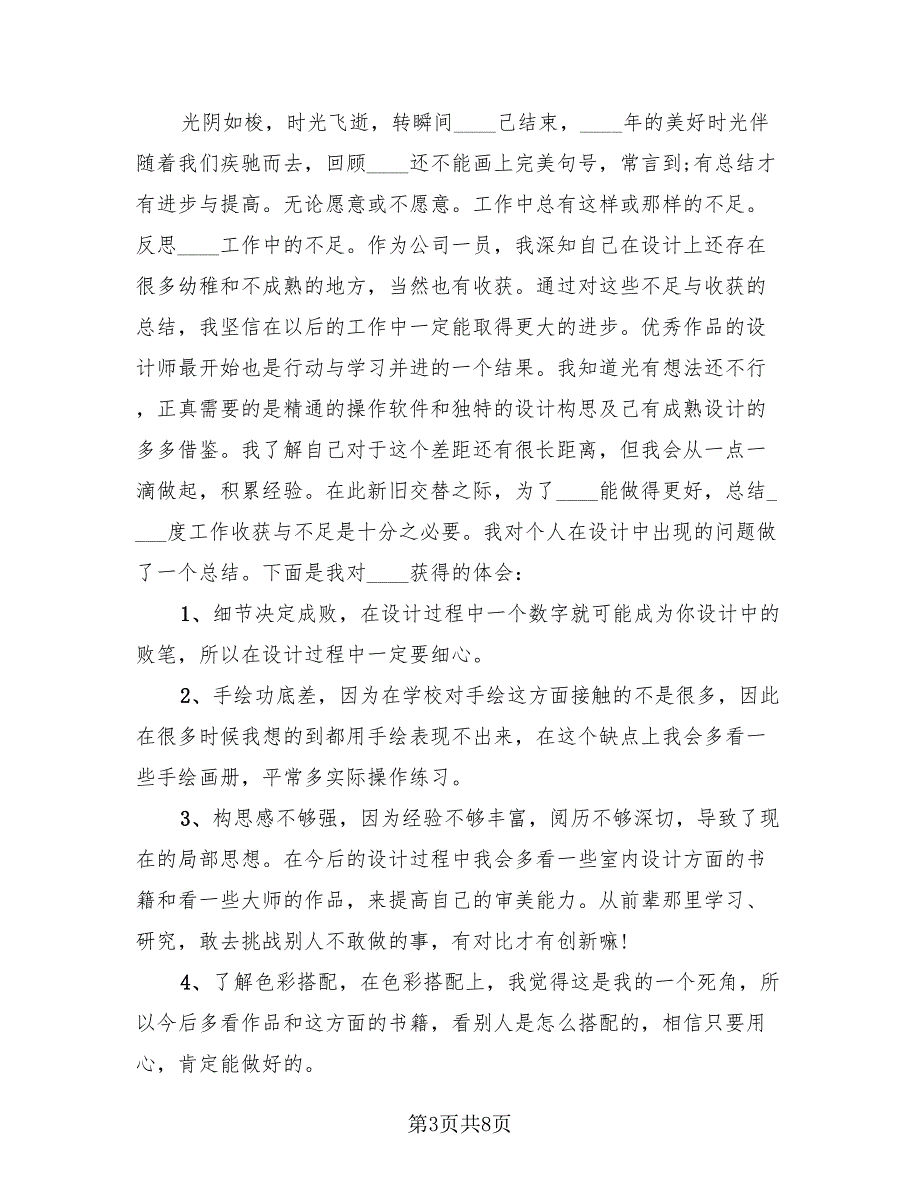 光阴如梭，时光飞逝，转瞬间____己结束，____年的美好时光伴
随着我们疾驰而去，回顾____还不能画上完美句号，常言到;有总结才
有进步与提高。无论愿意或不愿意。工作中总有这样或那样的不足。
反思____工作中的不足。作为公司一员，我深知自己在设计上还存在
很多幼稚和不成熟的地方，当然也有收获。通过对这些不足与收获的
总结，我坚信在以后的工作中一定能取得更大的进步。优秀作品的设
计师最开始也是行动与学习并进的一个结果。我知道光有想法还不行
，正真需要的是精通的操作软件和独特的设计构思及己有成熟设计的
多多借鉴。我了解自己对于这个差距还有很长距离，但我会从一点一
滴做起，积累经验。在此新旧交替之际，为了____能做得更好，总结_
___度工作收获与不足是十分之必要。我对个人在设计中出现的问题做
了一个总结。下面是我对____获得的体会：
1、细节决定成败，在设计过程中一个数字就可能成为你设计中的
败笔，所以在设计过程中一定要细心。
2、手绘功底差，因为在学校对手绘这方面接触的不是很多，因此
在很多时候我想的到都用手绘表现不出来，在这个缺点上我会多看一
些手绘画册，平常多实际操作练习。
3、构思感不够强，因为经验不够丰富，阅历不够深切，导致了现
在的局部思想。在今后的设计过程中我会多看一些室内设计方面的书
籍和看一些大师的作品，来提高自己的审美能力。从前辈那里学习、
研究，敢去挑战别人不敢做的事，有对比才有创新嘛!
4、了解色彩搭配，在色彩搭配上，我觉得这是我的一个死角，所
以今后多看作品和这方面的书籍，看别人是怎么搭配的，相信只要用
心，肯定能做好的。
第3页共8页